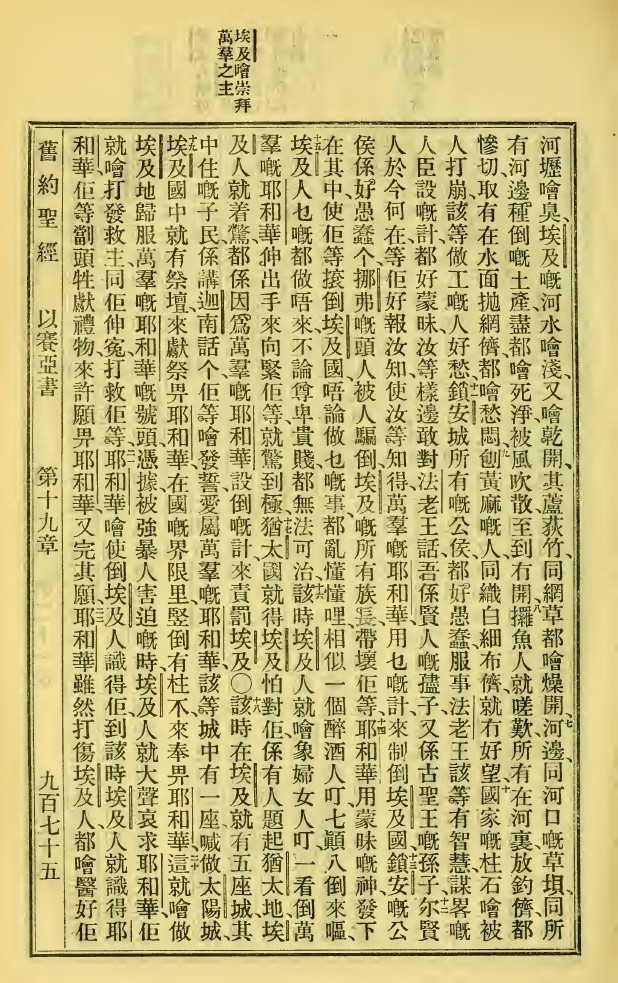 埃及噲崇拜
萬羣之主
河壢噲臭、埃及嘅河水噲淺、又噲乾開、其蘆荻竹、同網草都噲燥開、七河邊、同河口嘅草垻、同所
有河邊種倒嘅土產、盡都噲死淨、被風吹散至到冇開、八攞魚人就嗟歎、所有在河裏放釣儕都
慘切、取有在水面抛網儕都噲愁悶、九刨黃麻嘅人、同織白細布儕、就冇好望、十國家嘅柱石噲被
人打崩、該等做工嘅人好愁、十一鎖安城所有嘅公侯、都好愚蠢、服事法老王該等有智慧謀畧嘅
人臣設嘅計、都好蒙昧、汝等樣邊敢對法老王話、吾係賢人嘅孻子、又係古聖王嘅孫子、十二尔賢
人於今何在、等佢好報汝知、使汝等知得萬羣嘅耶和華、用乜嘅計、來制倒埃及國、十三鎖安嘅公
侯係好愚蠢、个挪弗嘅頭人被人騙倒、埃及嘅所有族長、帶壞佢等、十四耶和華用蒙昧嘅神發下
在其中、使佢等㨶倒埃及國、唔論做乜嘅事都亂懂懂哩、相似一個醉酒人叮七顛八倒來嘔、
十五埃及人乜嘅都做唔來、不論尊卑貴賤都無法可治、十六該時埃及人就噲象婦女人叮、一看倒萬
羣嘅耶和華伸出手來向緊佢等、就驚到極、十七猶太國就得埃及怕、對佢係有人題起猶太地、埃
及人就着驚、都係因爲萬羣嘅耶和華設倒嘅計、來責罰埃及○十八該時在埃及就有五座城、其
中住嘅子民、係講迦南話、个佢等噲發誓愛屬萬羣嘅耶和華、該等城中有一座喊做太陽城、
十九埃及國中就有祭壇、來獻祭畀耶和華、在國嘅界限里、竪倒有柱不、來奉畀耶和華、二十這就噲做
埃及地歸服萬羣嘅耶和華嘅號頭、憑據、被強暴人害迫嘅時、埃及人就大聲哀求耶和華、佢
就噲打發救主、同佢伸寃、打救佢等、二一耶和華噲使倒埃及人識得佢、到該時埃及人就識得耶
和華、佢等劏頭牲獻禮物、來許願畀耶和華、又完其願、二二耶和華雖然打傷埃及人、都噲醫好佢
舊約聖經 以賽亞書 第十九章 九百七十五